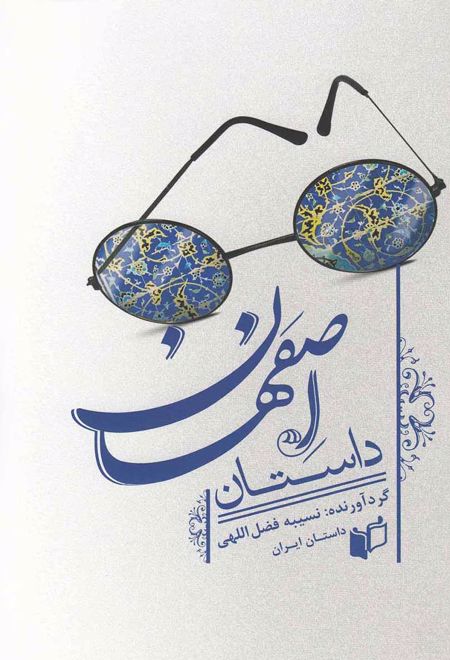 داستان
اصفهان
گردآورنده: نسیبه فضل اللهی
داستان ایران